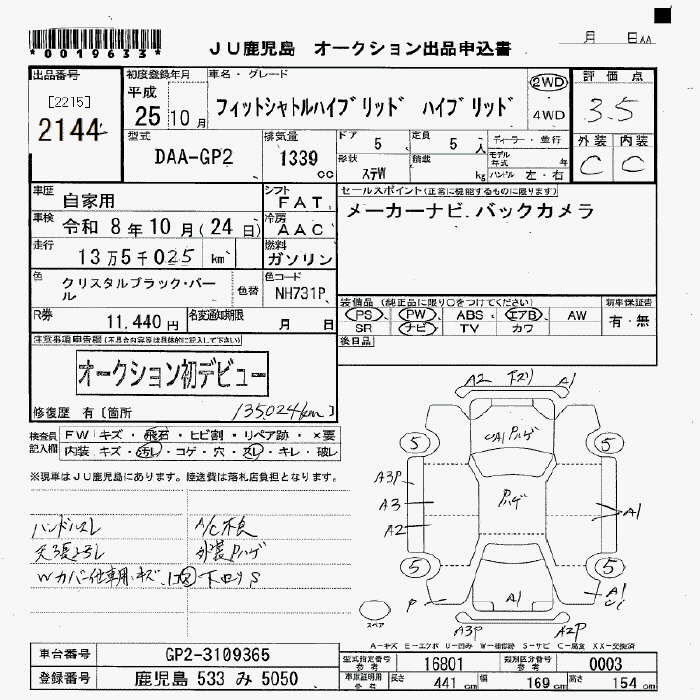 *0019633*
JU鹿児島 オークション出品申込書
月 日AA
出品番号
[2215]
2144
初度登録年月
平成
25 10月
車名・グレード
フィットシャトルハイブリッド ハイブリッド
2WD
4WD
評価点
3.5
外装 内装
C C
型式
DAA-GP2
排気量
1339
cc
ドア 5
定員 5 人
形状 ステW
積載 kg
ディーラー・並行
モデル年式 年
ハンドル 左・右
車歴 自家用
シフト FAT
車検 令和 8年 10月(24日)
冷房 AAC
走行 13万5千025 km
燃料 ガソリン
色 クリスタルブラック・パール
色替
色コード NH731P
R券 11,440円
名変通知期限 月 日
セールスポイント(正常に機能するものに限ります)
メーカーナビ.バックカメラ
装備品(純正品に限り○をつけてください)
PS、 PW、 ABS・エアB、 AW
SR ナビ・ TV カワ
新車保証書
有・無
後日品
注意事項申告欄(不具合内容等は具体的に記入して下さい)
オークション初デビュー
修復歴 有〔箇所
135024km)
検査員記入欄
FW キズ・飛石・ヒビ割・リペア跡・×要
内装 キズ・汚レ・コゲ・穴・スレ・キレ・破レ
※現車はJU鹿児島にあります。陸送費は落札店負担となります。
ハンドルスレ
A/C不良
外装Pハゲ
下回りS
A2 下スリ A1
A1 Pハゲ
5 5
A3P
A3
A2
Pハゲ
A1
5 5
P
A1
A1
A3P
A2P
スペア
A-キズ E-エクボ U-凹み W-補修跡 S-サビ C-腐食 XX-交換済
車台番号 GP2-3109365
登録番号 鹿児島 533 み 5050
型式指定番号参考 16801
類別区分番号参考 0003
車庫証明用参考 長さ 441 cm 幅 169 cm 高さ 154 cm